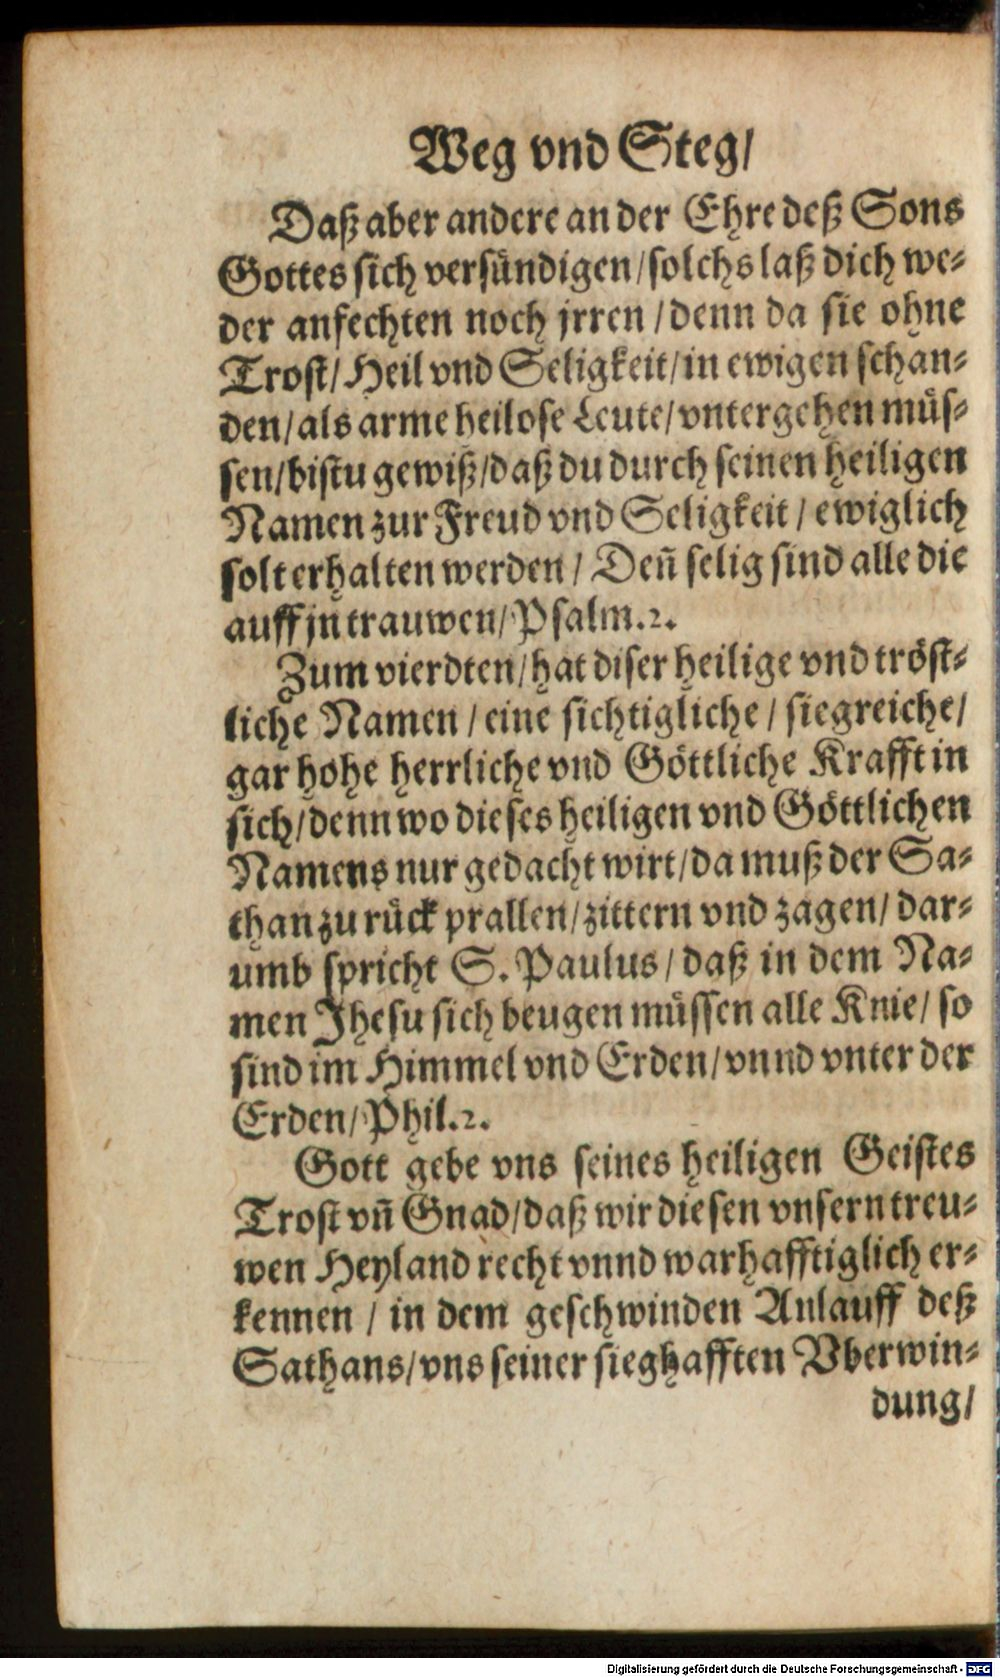 Weg vnd Steg/
Daß aber andere an der Ehre deß Sons
Gottes sich versündigen/solchs laß dich we-
der anfechten noch jrren/denn da sie ohne
Trost/Heil vnd Seligkeit/in ewigen schan-
den/als arme heilose Leute/vntergehen müs-
sen/bistu gewiß/daß du durch seinen heiligen
Namen zur Freud vnd Seligkeit/ewiglich
solt erhalten werden/Deñ selig sind alle die
auff jn trauwen/Psalm.2.
Zum vierdten/hat diser heilige vnd tröst-
liche Namen/eine sichtigliche/siegreiche/
gar hohe herrliche vnd Göttliche Krafft in
sich/denn wo dieses heiligen vnd Göttlichen
Namens nur gedacht wirt/da muß der Sa-
than zu rück prallen/zittern vnd zagen/dar-
umb spricht S. Paulus/daß in dem Na-
men Jhesu sich beugen müssen alle Knie/so
sind im Himmel vnd Erden/vnnd vnter der
Erden/Phil.2.
Gott gebe vns seines heiligen Geistes
Trost vñ Gnad/daß wir diesen vnsern treu-
wen Heyland recht vnnd warhafftiglich er-
kennen/in dem geschwinden Anlauff deß
Sathans/vns seiner sieghafften Vberwin-
dung/
Digitalisierung gefördert durch die Deutsche Forschungsgemeinschaft - DFG